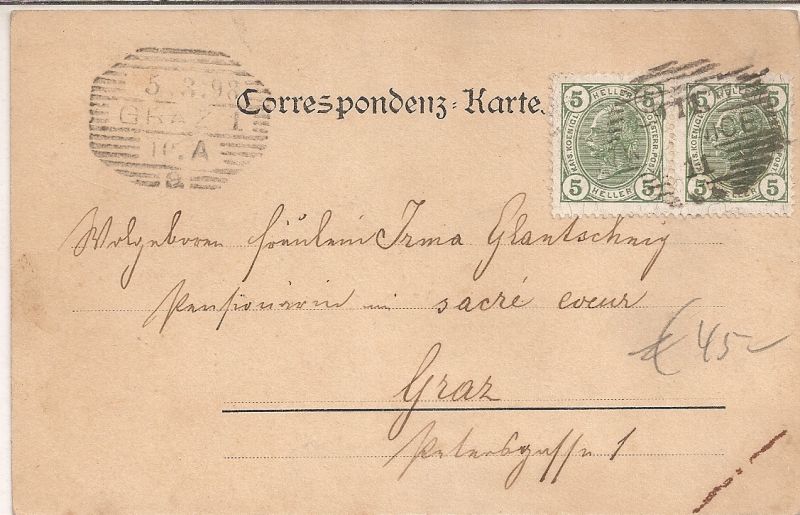 5.3.98
GRAZ 1
10.A
a
Correspondenz-Karte.
5 HELLER 5
KAIS. KOENIGL. OESTERR. POST
5 HELLER 5
5 HELLER 5
KAIS. KOENIGL. OESTERR. POST
5 HELLER 5
Wolgeboren Fräulein Irma Glantschnig
Pensionärin im sacré coeur
€ 45-
Graz
Petersgasse 1